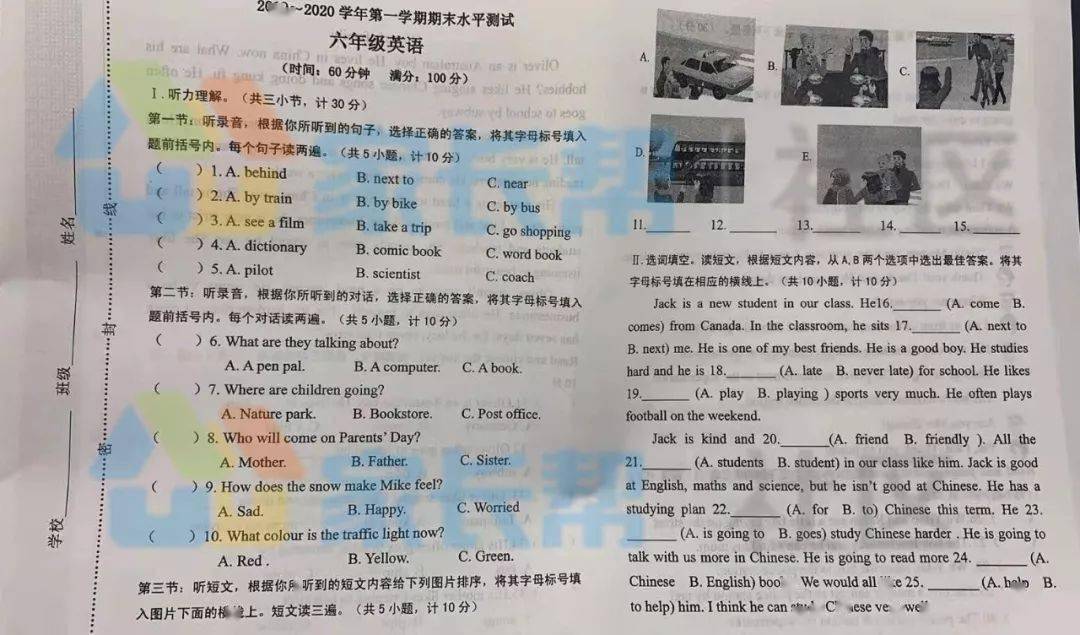 ~2020 学年第一学期期末水平测试
六年级英语
（时间：60 分钟 满分：100 分）
Ⅰ. 听力理解。（共三小节，计 30 分）
第一节：听录音，根据你所听到的句子，选择正确的答案，将其字母标号填入
题前括号内。每个句子读两遍。（共 5 小题，计 10 分）
( ) 1. A. behind B. next to C. near
( ) 2. A. by train B. by bike C. by bus
( ) 3. A. see a film B. take a trip C. go shopping
( ) 4. A. dictionary B. comic book C. word book
( ) 5. A. pilot B. scientist C. coach
第二节：听录音，根据你所听到的对话，选择正确的答案，将其字母标号填入
题前括号内。每个对话读两遍。（共 5 小题，计 10 分）
( ) 6. What are they talking about?
A. A pen pal. B. A computer. C. A book.
( ) 7. Where are children going?
A. Nature park. B. Bookstore. C. Post office.
( ) 8. Who will come on Parents' Day?
A. Mother. B. Father. C. Sister.
( ) 9. How does the snow make Mike feel?
A. Sad. B. Happy. C. Worried
( ) 10. What colour is the traffic light now?
A. Red . B. Yellow. C. Green.
第三节：听短文，根据你所听到的短文内容给下列图片排序，将其字母标号填
入图片下面的横线上。短文读三遍。（共 5 小题，计 10 分）
学校 班级 姓名
密 封 线
A. B. C.
D. E.
11.______ 12. ______ 13.______ 14. ______ 15. ______
Ⅱ. 选词填空。读短文，根据短文内容，从 A, B 两个选项中选出最佳答案。将其
字母标号填在相应的横线上。（共 10 小题，计 10 分）
Jack is a new student in our class. He16.______ (A. come B.
comes) from Canada. In the classroom, he sits 17.______ (A. next to
B. next) me. He is one of my best friends. He is a good boy. He studies
hard and he is 18.______ (A. late B. never late) for school. He likes
19.______ (A. play B. playing ) sports very much. He often plays
football on the weekend.
Jack is kind and 20.______(A. friend B. friendly ). All the
21.______ (A. students B. student) in our class like him. Jack is good
at English, maths and science, but he isn't good at Chinese. He has a
studying plan 22.______ (A. for B. to) Chinese this term. He 23.
______ (A. is going to B. goes) study Chinese harder . He is going to
talk with us more in Chinese. He is going to read more 24. ______ (A.
Chinese B. English) We would all 25.______ (A. help B.
to help) him. I think he can
家长帮
社区